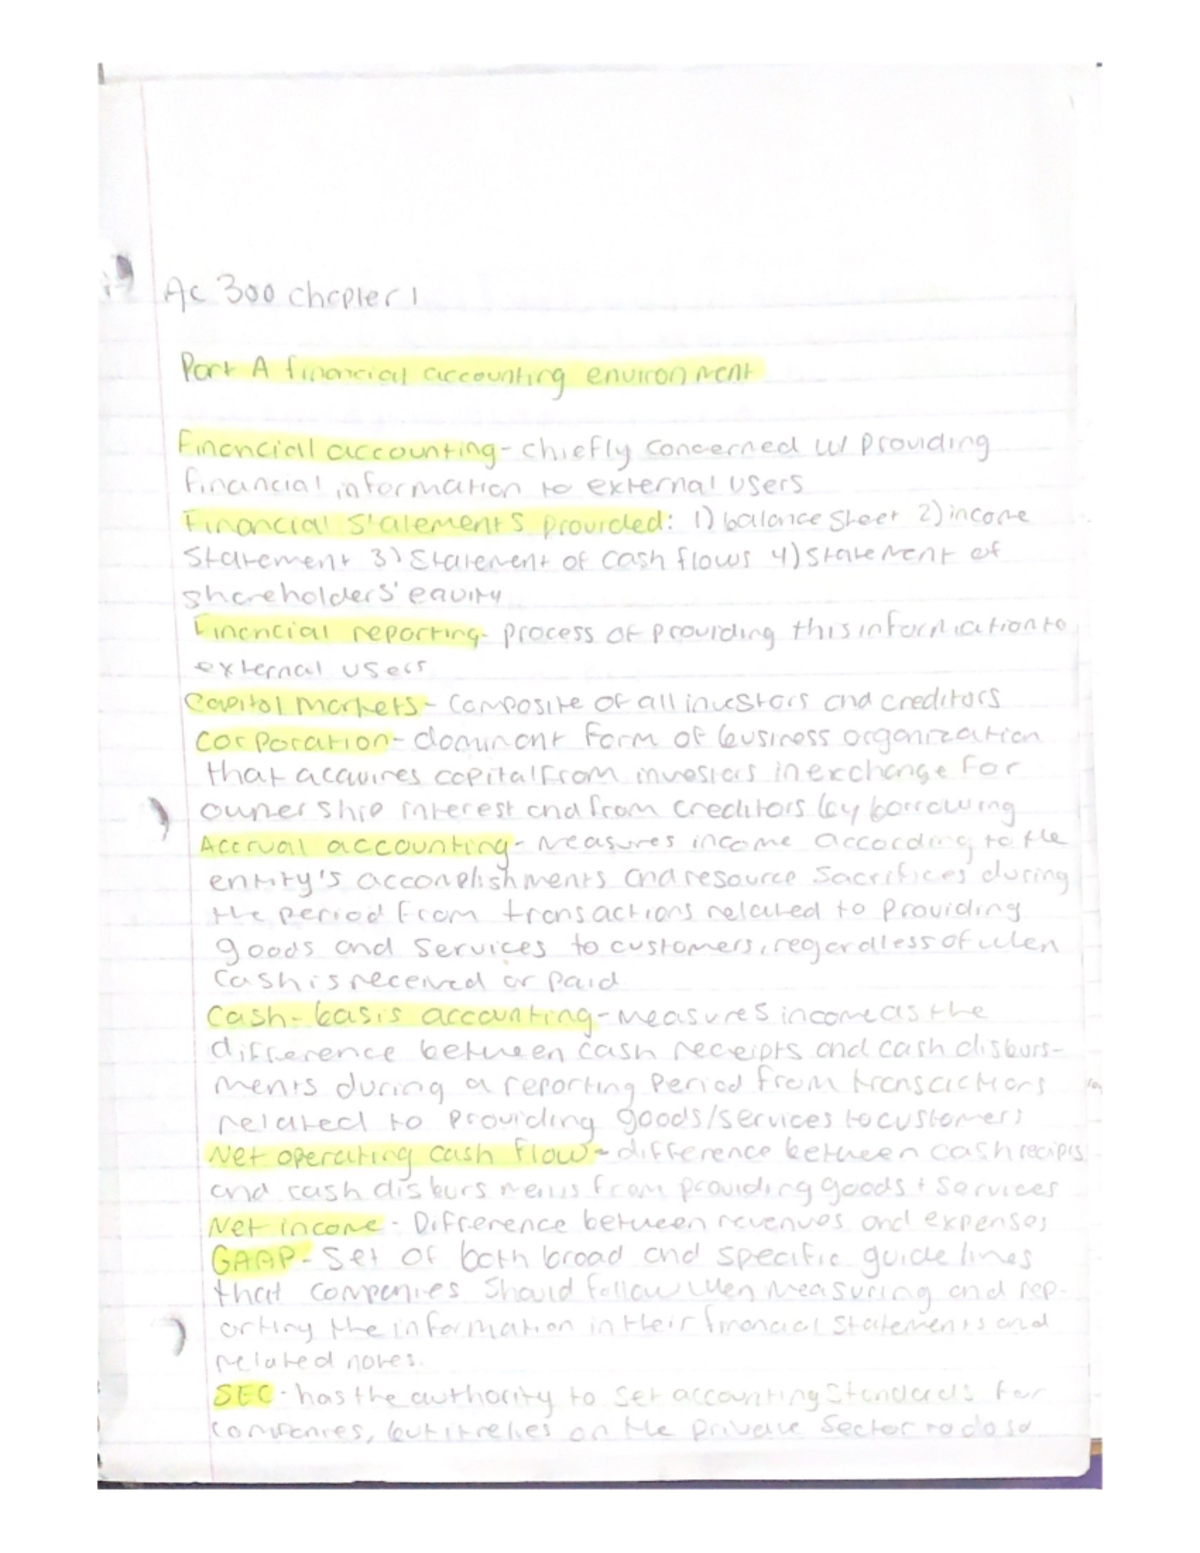 Ac 300 chapter 1
Part A financial accounting environment
Financial accounting - chiefly concerned w/ providing
financial information to external users
Financial Statements provided: 1) balance sheet 2) income
statement 3) Statement of cash flows 4) statement of
shareholders' equity
Financial reporting - process of providing this information to
external users
Capital markets - Composite of all investors and creditors
Corporation - dominant form of business organization
that acquires capital from investors in exchange for
ownership interest and from creditors by borrowing
Accrual accounting - measures income according to the
entity's accomplishments and resource sacrifices during
the period from transactions related to providing
goods and services to customers, regardless of when
cash is received or paid
Cash-basis accounting - measures income as the
difference between cash receipts and cash disburs-
ments during a reporting period from transactions
related to providing goods/services to customers
Net operating cash flow - difference between cash recipts
and cash disbursments from providing goods + services
Net income - Difference between revenues and expenses
GAAP - Set of both broad and specific guidelines
that companies should follow when measuring and rep-
orting the information in their financial statements and
related notes.
SEC - has the authority to set accounting standards for
companies, but it relies on the private sector to do so